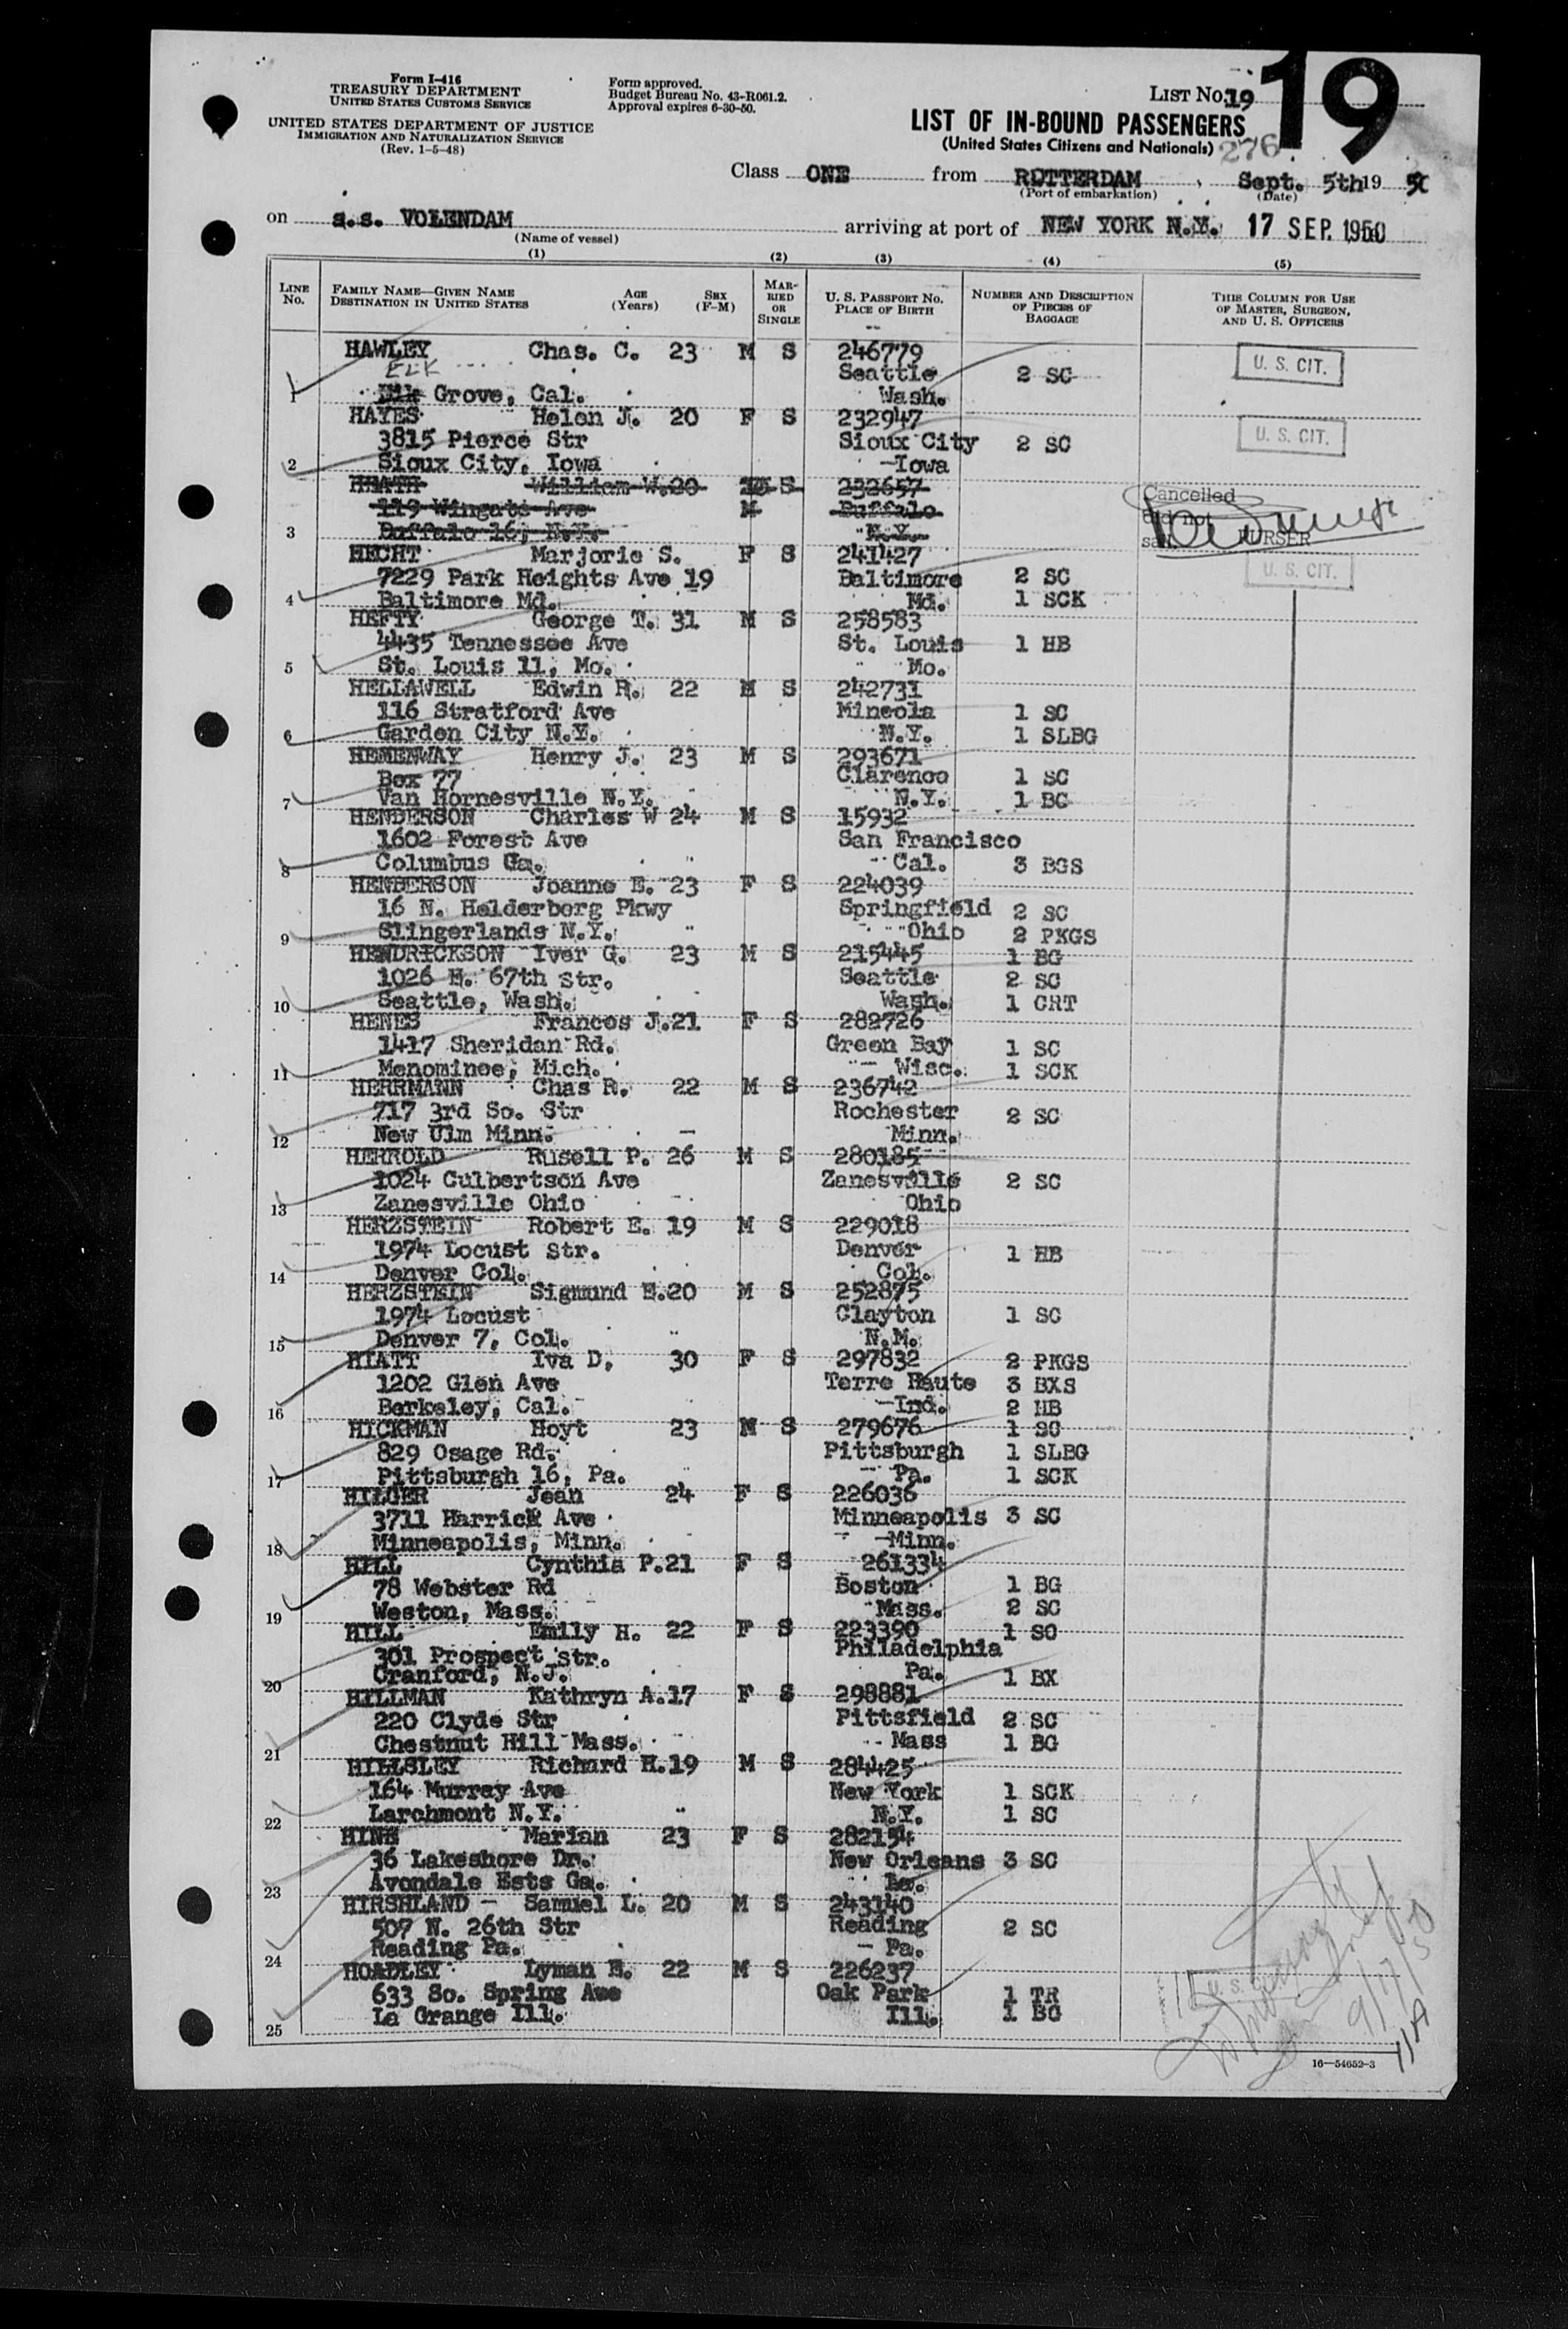 Form I-416
TREASURY DEPARTMENT
UNITED STATES CUSTOMS SERVICE
UNITED STATES DEPARTMENT OF JUSTICE
IMMIGRATION AND NATURALIZATION SERVICE
(Rev. 1-5-48)
Form approved.
Budget Bureau No. 43-R061.2.
Approval expires 6-30-50.
LIST No. 19
19
LIST OF IN-BOUND PASSENGERS
(United States Citizens and Nationals) 276
Class ONE from ROTTERDAM, Sept. 5th 19 50
(Port of embarkation) (Date)
on s.s. VOLENDAM arriving at port of NEW YORK N.Y. 17 SEP. 1950
(Name of vessel)
(1) (2) (3) (4) (5)
LINE No.
FAMILY NAME—GIVEN NAME
DESTINATION IN UNITED STATES
AGE (Years)
SEX (F-M)
MARRIED OR SINGLE
U. S. PASSPORT NO.
PLACE OF BIRTH
NUMBER AND DESCRIPTION OF PIECES OF BAGGAGE
THIS COLUMN FOR USE OF MASTER, SURGEON, AND U. S. OFFICERS
HAWLEY Chas. C. 23 M S 246779
ELK Seattle 2 SC U. S. CIT.
1 Elk Grove, Cal. Wash.
HAYES Helen J. 20 F S 232947
3815 Pierce Str Sioux City 2 SC U. S. CIT.
2 Sioux City, Iowa Iowa
HEATH William W. 20 S 232657
119 Wingate Ave M Buffalo Cancelled
3 Buffalo 16, N.Y. N.Y. did not sail PURSER
HECHT Marjorie S. F S 241427
7229 Park Heights Ave 19 Baltimore 2 SC U. S. CIT.
4 Baltimore Md. Md. 1 SCK
HEFTY George T. 31 M S 258583
4435 Tennessee Ave St. Louis 1 HB
5 St. Louis 11, Mo. Mo.
HELLAWELL Edwin R. 22 M S 242731
116 Stratford Ave Mineola 1 SC
6 Garden City N.Y. N.Y. 1 SLBG
HEMENWAY Henry J. 23 M S 293671
Box 77 Clarence 1 SC
7 Van Hornesville N.Y. N.Y. 1 BG
HENDERSON Charles W 24 M S 15932
1602 Forest Ave San Francisco
8 Columbus Ga. Cal. 3 BGS
HENDERSON Joanne E. 23 F S 224039
16 N. Helderberg Pkwy Springfield 2 SC
9 Slingerlands N.Y. Ohio 2 PKGS
HENDRICKSON Iver G. 23 M S 215445 1 BG
1026 E. 67th Str. Seattle 2 SC
10 Seattle, Wash. Wash. 1 CRT
HENES Frances J. 21 F S 282726
1417 Sheridan Rd. Green Bay 1 SC
11 Menominee, Mich. Wisc. 1 SCK
HERRMANN Chas R. 22 M S 236742
717 3rd So. Str Rochester 2 SC
12 New Ulm Minn. Minn.
HERROLD Rusell P. 26 M S 280185
1024 Culbertson Ave Zanesville 2 SC
13 Zanesville Ohio Ohio
HERZSTEIN Robert E. 19 M S 229018
1974 Locust Str. Denver 1 HB
14 Denver Col. Col.
HERZSTEIN Sigmund E. 20 M S 252875
1974 Locust Clayton 1 SC
15 Denver 7, Col. N.M.
HIATT Iva D. 30 F S 297832 2 PKGS
1202 Glen Ave Terre Haute 3 BXS
16 Berkeley, Cal. Ind. 2 HB
HICKMAN Hoyt 23 M S 279676 1 SC
829 Osage Rd. Pittsburgh 1 SLBG
17 Pittsburgh 16, Pa. Pa. 1 SCK
HILGER Jean 24 F S 226036
3711 Harrick Ave Minneapolis 3 SC
18 Minneapolis, Minn. Minn.
HILL Cynthia P. 21 F S 261334
78 Webster Rd Boston 1 BG
19 Weston, Mass. Mass. 2 SC
HILL Emily H. 22 F S 223390 1 SC
301 Prospect Str. Philadelphia
20 Cranford, N.J. Pa. 1 BX
HILLMAN Kathryn A. 17 F S 298881
220 Clyde Str Pittsfield 2 SC
21 Chestnut Hill Mass. Mass 1 BG
HILLSLEY Richard H. 19 M S 284425
164 Murray Ave New York 1 SCK
22 Larchmont N.Y. N.Y. 1 SC
HINE Marian 23 F S 282154
36 Lakeshore Dr. New Orleans 3 SC
23 Avondale Ests Ga. La.
HIRSHLAND Samuel L. 20 M S 243140
507 N. 26th Str Reading 2 SC
24 Reading Pa. Pa.
HOADLEY Lyman E. 22 M S 226237
633 So. Spring Ave Oak Park 1 TR
25 La Grange Ill. Ill. 1 BG
9/17/50
16—54652-3